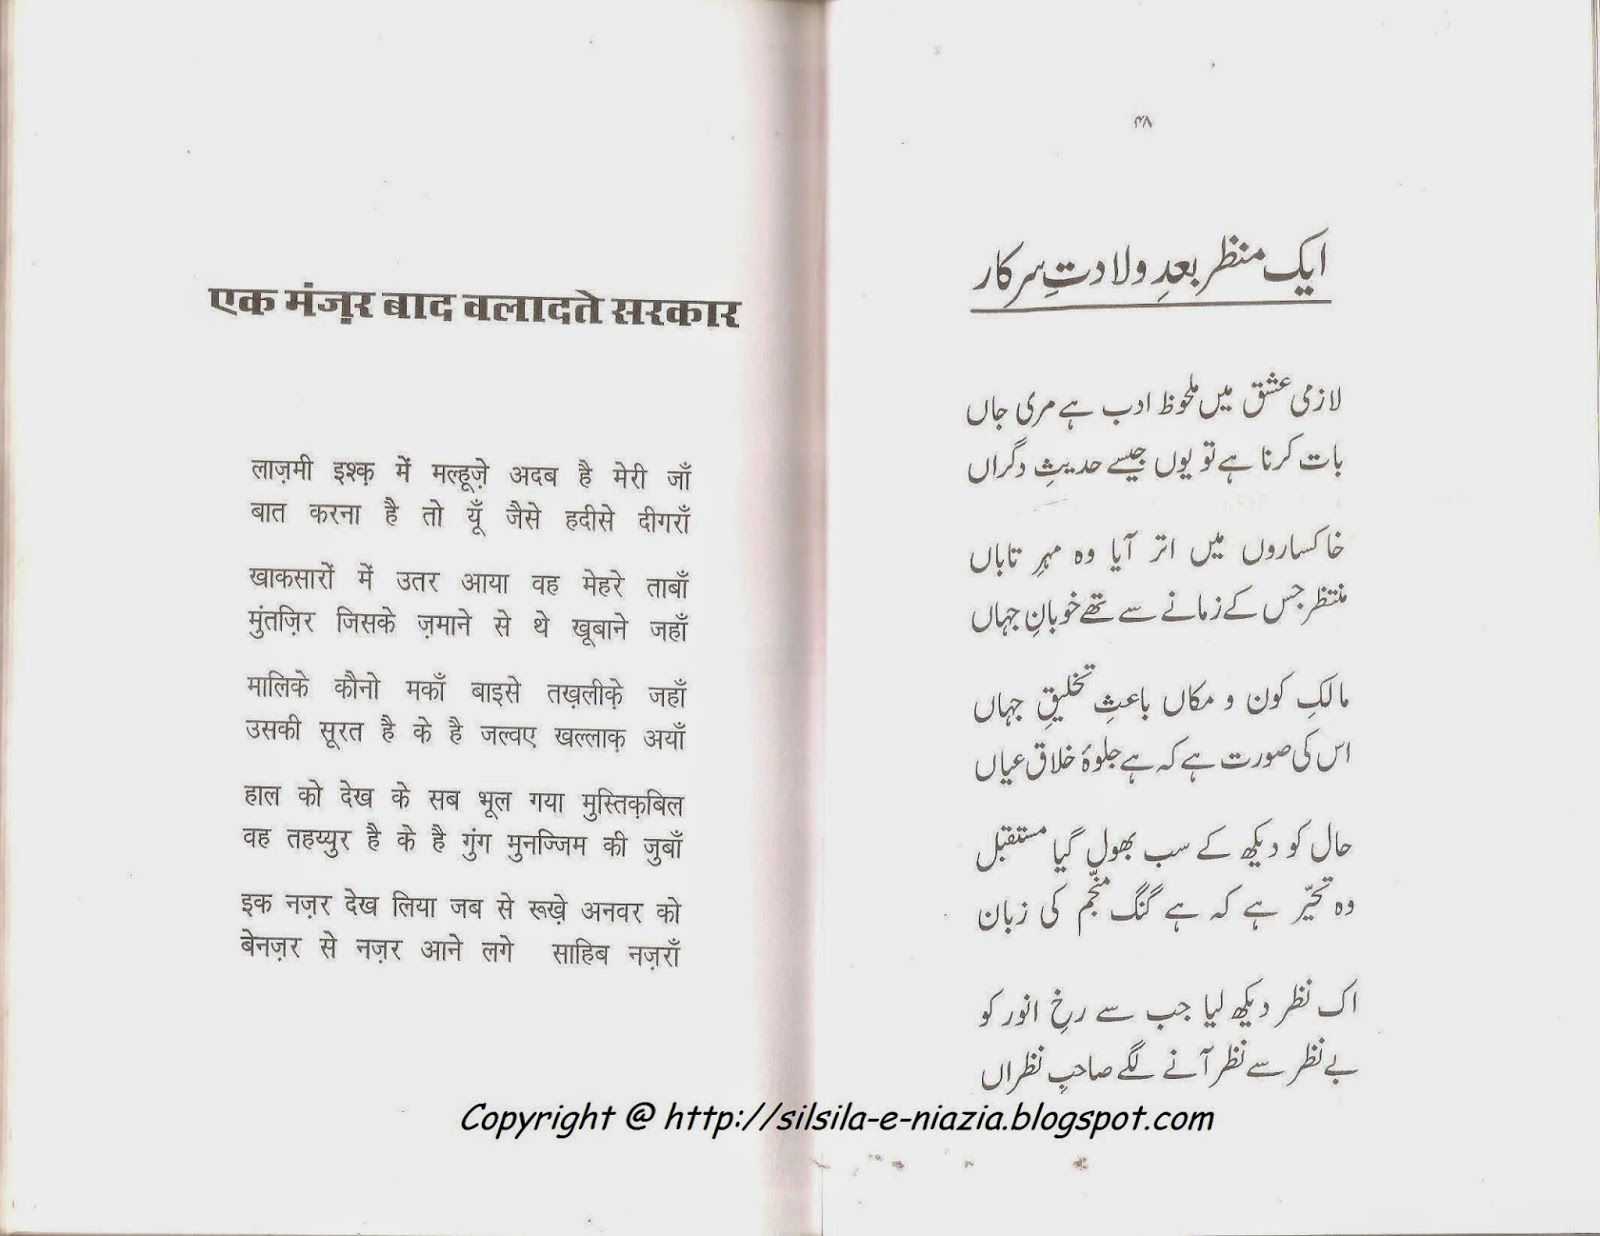 एक मंज़र बाद वलादते सरकार
लाज़मी इश्क़ में मल्हूज़े अदब है मेरी जाँ
बात करना है तो यूँ जैसे हदीसे दीगराँ
खाकसारों में उतर आया वह मेहरे ताबाँ
मुंतज़िर जिसके ज़माने से थे खूबाने जहाँ
मालिके कौनो मकाँ बाइसे तख़लीक़े जहाँ
उसकी सूरत है के है जल्वए खल्लाक़ अयाँ
हाल को देख के सब भूल गया मुस्तिक़बिल
वह तहय्युर है के है गुंग मुनज्जिम की जुबाँ
इक नज़र देख लिया जब से रूख़े अनवर को
बेनज़र से नज़र आने लगे साहिब नज़राँ
۴۸
ایک منظر بعدِ ولادتِ سرکار
لازمی عشق میں ملحوظ ادب ہے مری جاں
بات کرنا ہے تو یوں جیسے حدیثِ دگراں
خاکساروں میں اتر آیا وہ مہرِ تاباں
منتظر جس کے زمانے سے تھے خوبانِ جہاں
مالکِ کون و مکاں باعثِ تخلیقِ جہاں
اس کی صورت ہے کہ ہے جلوۂ خلاق عیاں
حال کو دیکھ کے سب بھول گیا مستقبل
وہ تحیّر ہے کہ ہے گنگ منجّم کی زبان
اک نظر دیکھ لیا جب سے رخِ انور کو
بے نظر سے نظر آنے لگے صاحبِ نظراں
Copyright @ http://silsila-e-niazia.blogspot.com